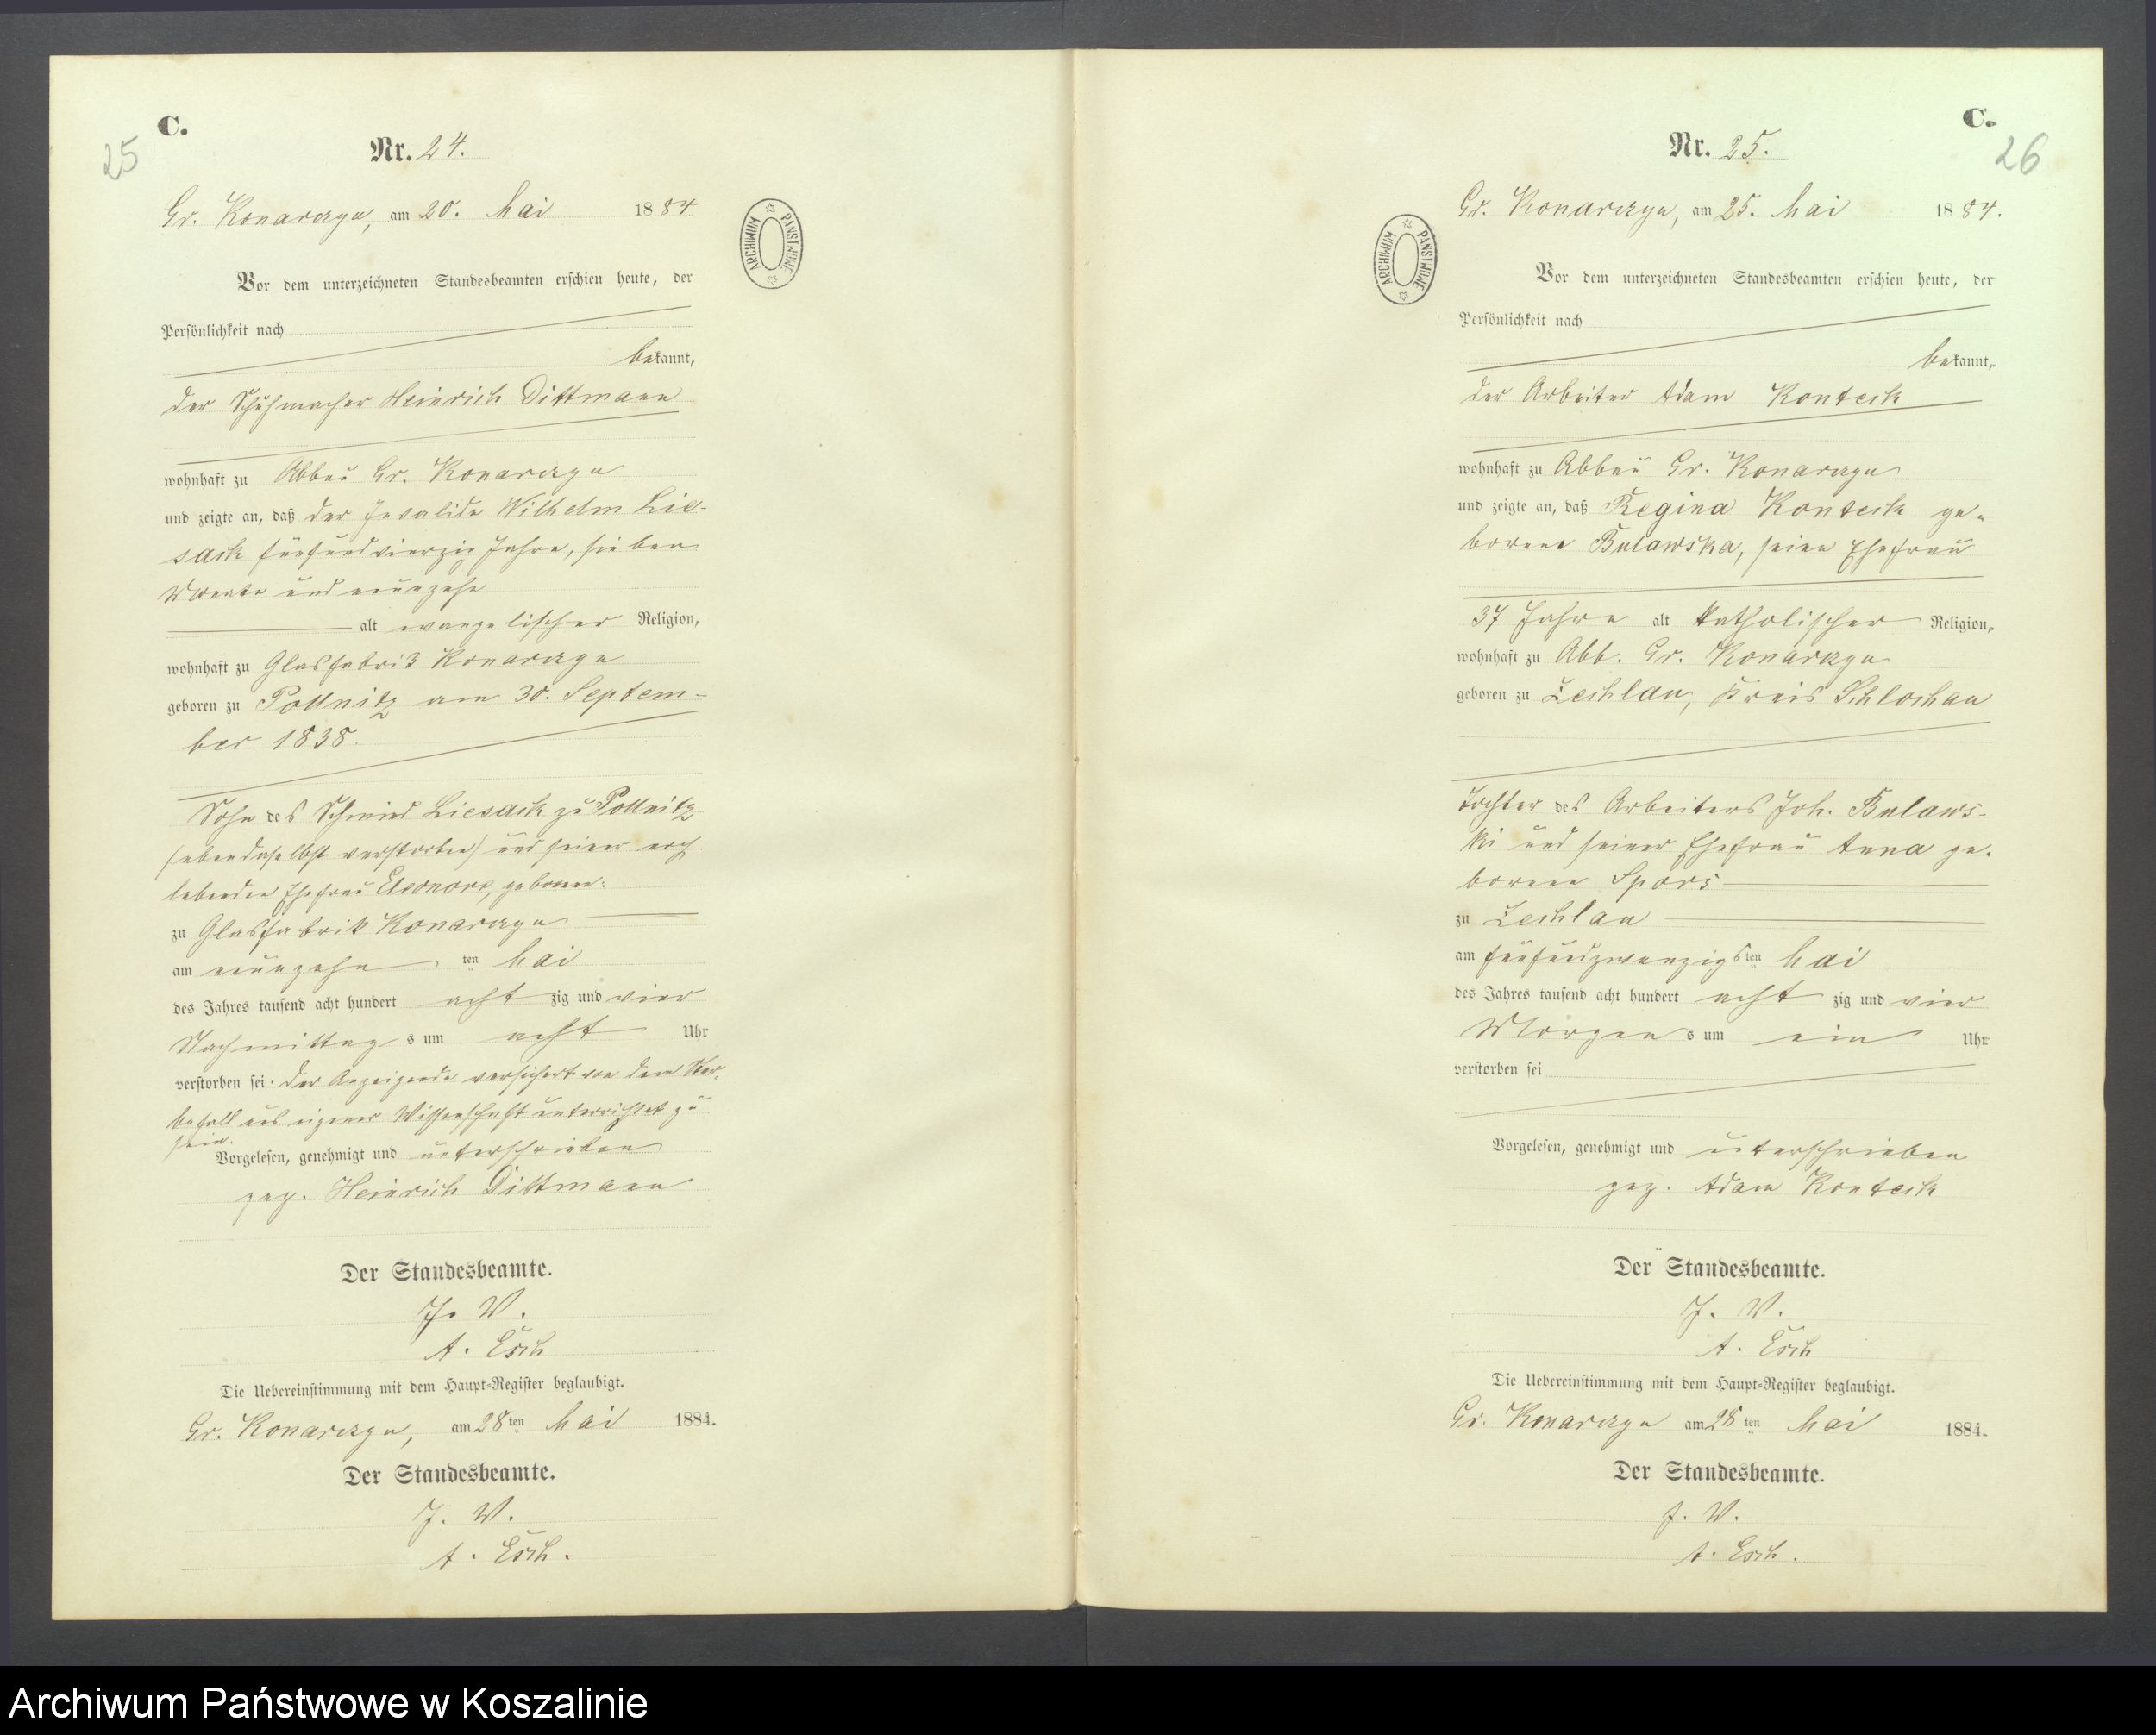 C.
25
Nr. 24.
Gr. Konarczyn, am 20. Mai 1884
ARCHIWUM PAŃSTWOWE
Vor dem unterzeichneten Standesbeamten erschien heute, der
Persönlichkeit nach
bekannt,
der Schuhmacher Heinrich Dittmann
wohnhaft zu Abbau Gr. Konarczyn
und zeigte an, daß der Invalide Wilhelm Lie-
sack fünfundvierzig Jahre, sieben
Monate und neunzehn
alt evangelischer Religion,
wohnhaft zu Glasfabrik Konarczyn
geboren zu Pollnitz am 30. Septem-
ber 1838.
Sohn des Schmied Liesack zu Pollnitz
(ebendaselbst verstorben) und seiner noch
lebenden Ehefrau Eleonore, geborene:
zu Glasfabrik Konarczyn
am neunzehn ten Mai
des Jahres tausend acht hundert acht zig und vier
Nachmittag s um acht Uhr
verstorben sei. Der Anzeigende versichert von dem Ster-
befall aus eigener Wissenschaft unterrichtet zu
sein.
Vorgelesen, genehmigt und unterschrieben
gez. Heinrich Dittmann
Der Standesbeamte.
J. V.
A. Esch
Die Uebereinstimmung mit dem Haupt-Register beglaubigt.
Gr. Konarczyn, am 28 ten Mai 1884.
Der Standesbeamte.
J. V.
A. Esch.
C.
26
Nr. 25.
Gr. Konarczyn, am 25. Mai 1884.
ARCHIWUM PAŃSTWOWE
Vor dem unterzeichneten Standesbeamten erschien heute, der
Persönlichkeit nach
bekannt,
der Arbeiter Adam Konteck
wohnhaft zu Abbau Gr. Konarczyn
und zeigte an, daß Regina Konteck ge-
borene Bulawska, seine Ehefrau
37 Jahre alt katholischer Religion,
wohnhaft zu Abb. Gr. Konarczyn
geboren zu Zechlau, Kreis Schlochau
Tochter des Arbeiters Joh. Bulaws-
ki und seiner Ehefrau Anna ge-
borene Spors
zu Zechlau
am fünfundzwanzigsten Mai
des Jahres tausend acht hundert acht zig und vier
Morgen s um ein Uhr
verstorben sei
Vorgelesen, genehmigt und unterschrieben
gez. Adam Konteck
Der Standesbeamte.
J. V.
A. Esch
Die Uebereinstimmung mit dem Haupt-Register beglaubigt.
Gr. Konarczyn am 28 ten Mai 1884.
Der Standesbeamte.
J. V.
A. Esch.
Archiwum Państwowe w Koszalinie